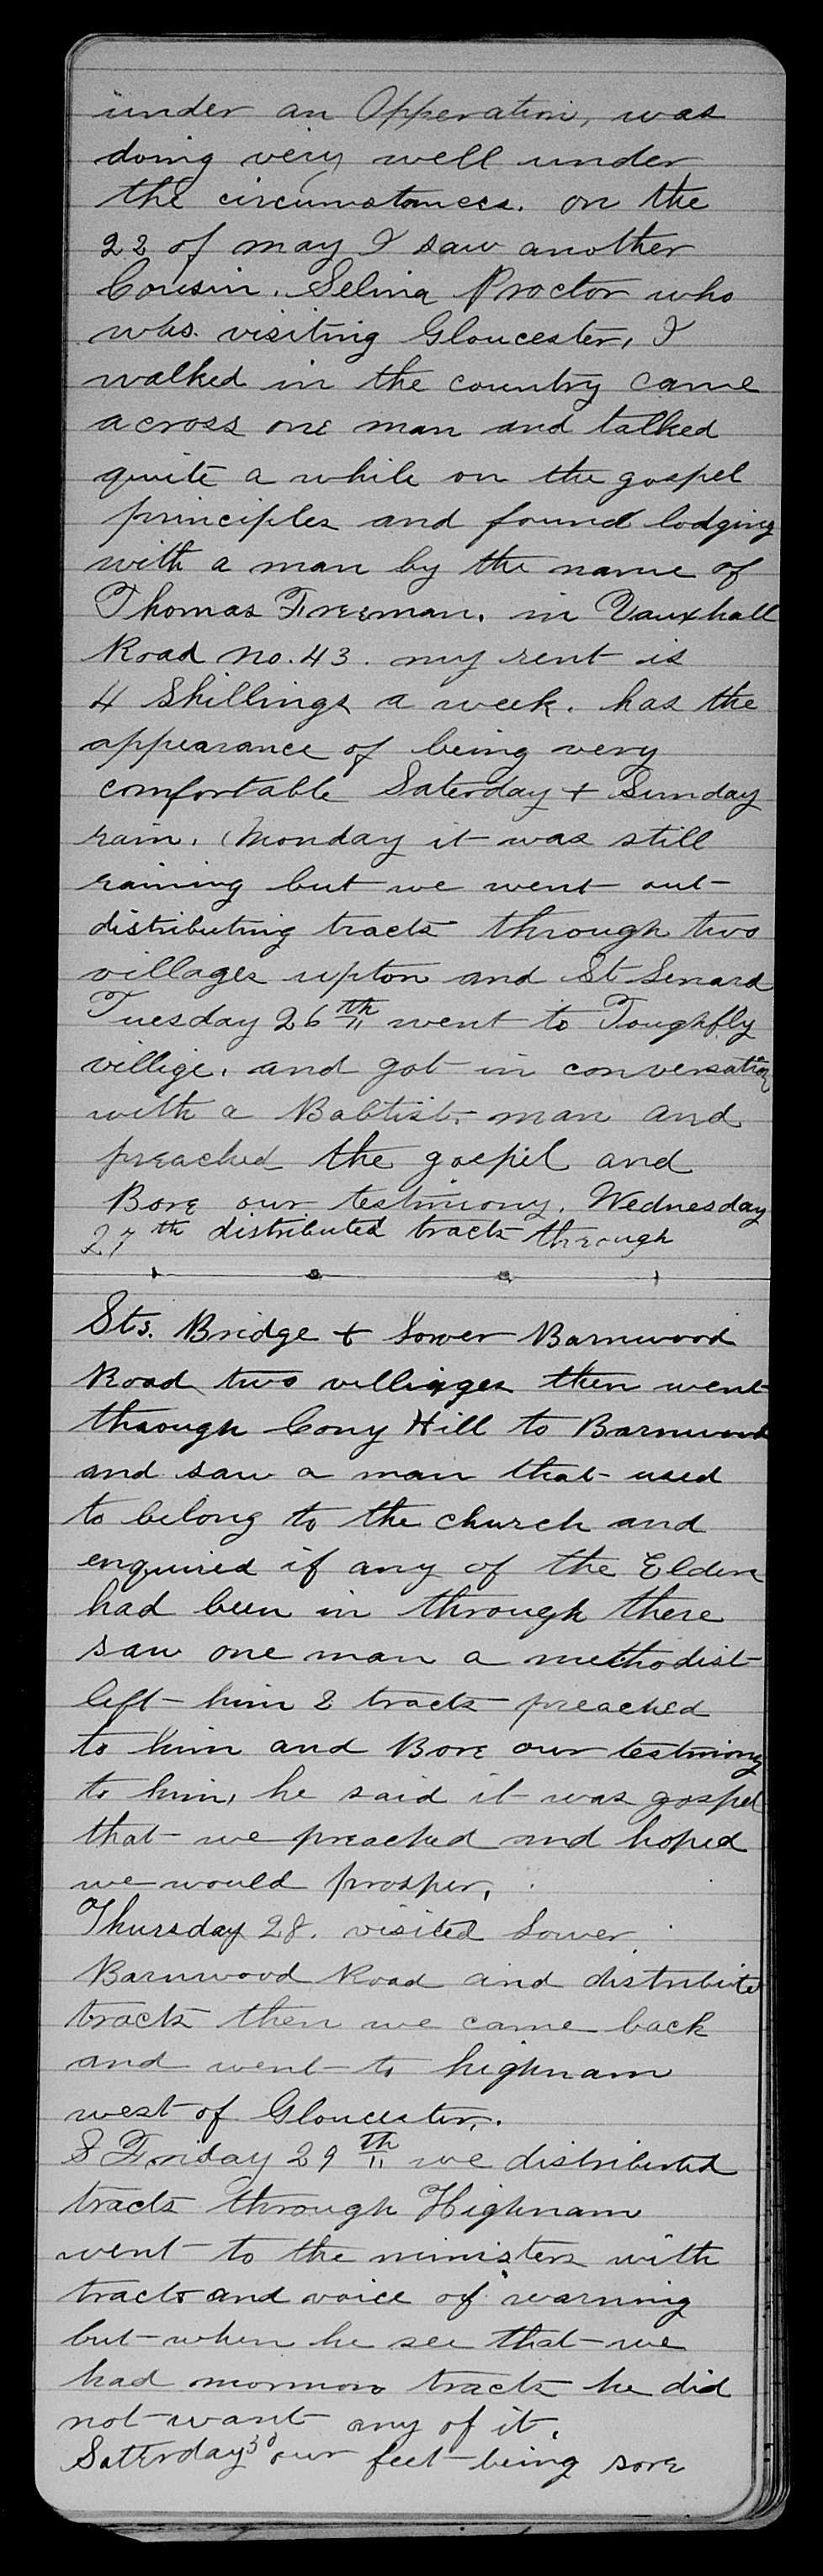 under an Opperation, was
doing very well under
the circumstances. on the
22 of may I saw another
Cousin. Selina Proctor who
was visiting Gloucester, I
walked in the country came
across one man and talked
quite a while on the gospel
principles and found lodging
with a man by the name of
Thomas Freeman. in Vauxhall
Road no. 43. my rent is
4 Shillings a week. has the
appearance of being very
comfortable Saterday + Sunday
rain. Monday it was still
raining but we went out
distributing tracts through two
villages upton and St Lenard
Tuesday 26th went to Toughfly
villige. and got in conversation
with a Babtist man and
preached the gospel and
Bore our testimony. Wednesday
27th distributed tracts through
Sts. Bridge + Lower Barnwood
Road two villiages then went
through Cony Hill to Barnwood
and saw a man that used
to belong to the church and
enquired if any of the Elders
had been in through there
saw one man a methodist
left him 2 tracts preached
to him and Bore our testmony
to him, he said it was gospel
that we preached and hoped
we would prosper.
Thursday 28. visited Lower
Barnwood Road and distributed
tracts then we came back
and went to highnam
west of Gloucester.
Friday 29th we distributed
tracts through Highnam
went to the ministers with
tracts and voice of warning
but when he see that we
had mormon tracts he did
not want any of it.
Satterday 30 our feet being sore